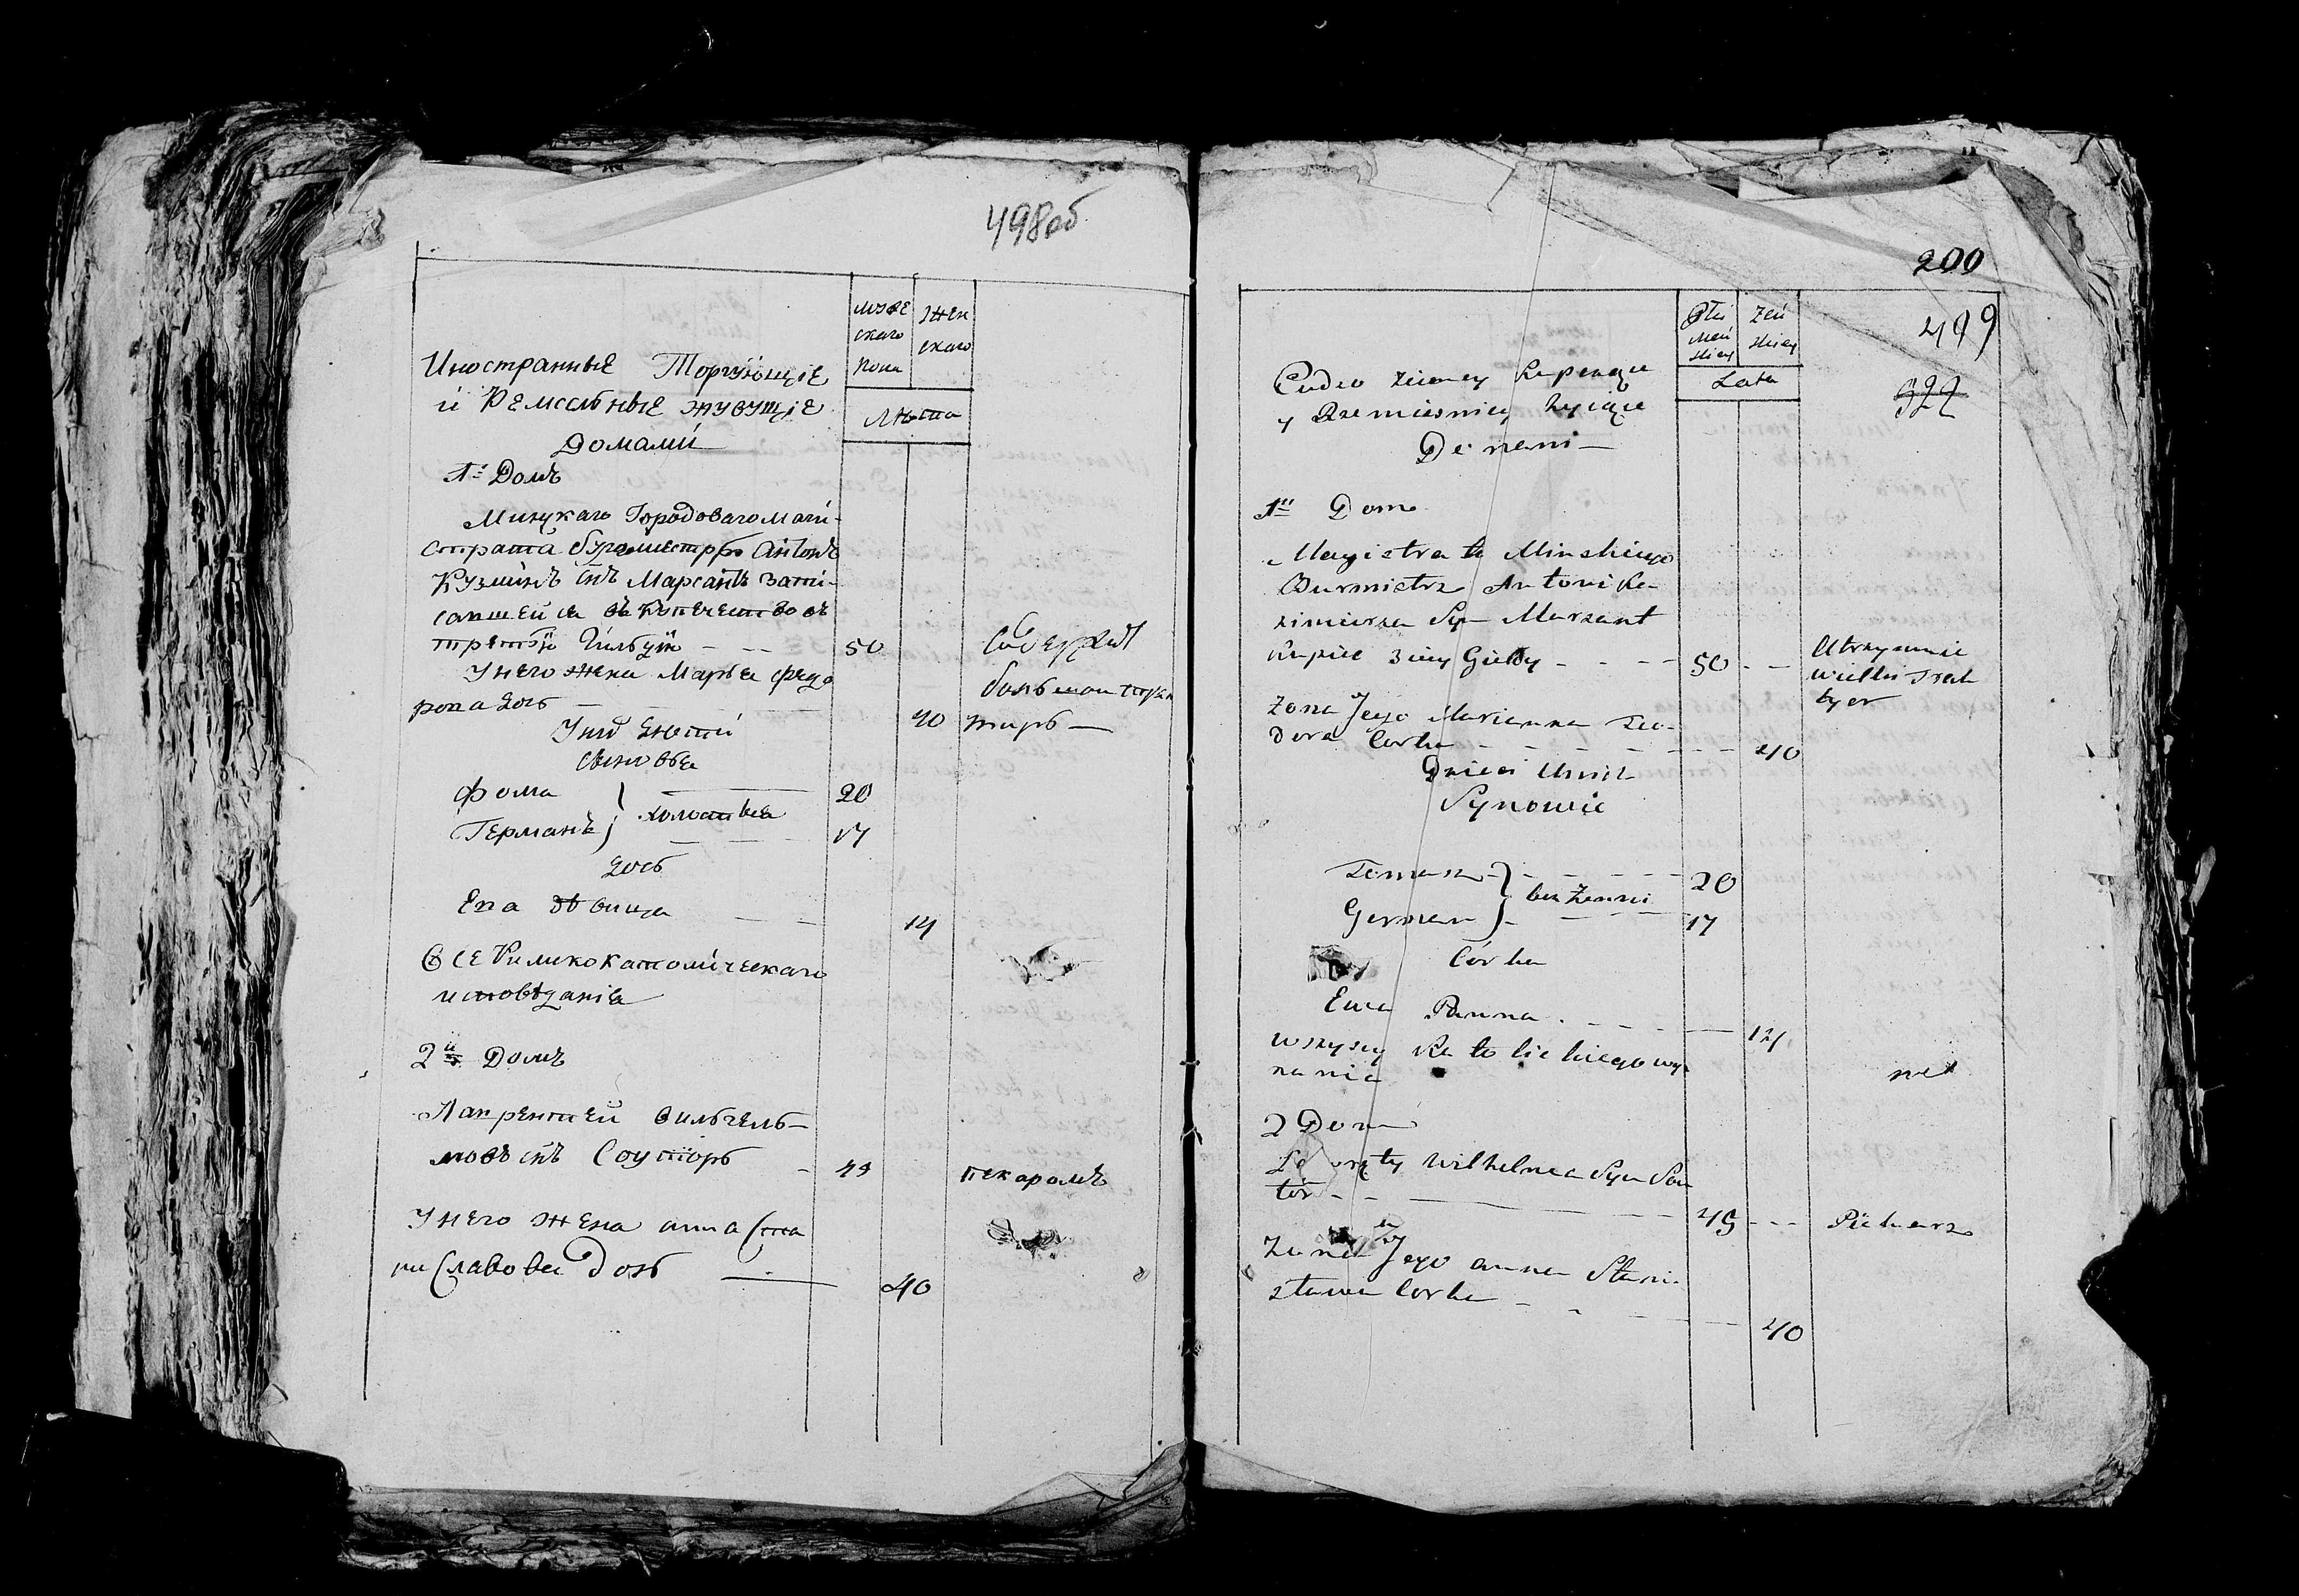 498об
мужескаго пола
женскаго
лѣта
Иностранные Торгующіе
и Ремесльные живущіе
Домами
1й Домъ
Минскаго Городоваго маги-
страта бургмистръ Антонъ
Кузминъ снъ Марсантъ запи-
савшейся въ купечество въ
третью Гильдію - - - 50
Содержит
У него жена Марья Федо
рова дочь 40
У них Дети
сыновья
Фома } холостыя 20
Германъ } 17
дочь
Ева дѣвица 14
Все Римско католическаго
исповѣданія
2й Домъ
Лаврентей Вильгель-
мовъ снъ Соуторъ - 49 пекаромъ
У него жена анна Ста
ниславова Дочь 40
200
499
327
Płci
męń
skiey
żeń
skiey
Lata
Cudzoziemcy kupczące
y Rzemieśnicy żyiące
Domami
1n Dom
Magistratu Minskiego
Burmistrz Antoni Ka-
zimierza Syn Marzant
Kupiec 3ciey Gieldy - - - 50 - -
Utrzymuie
wielki Trak
tyer
Żona Jego Marianna Teo-
dora Corka - - - 40
Dzieci Unich
Synowie
Tomasz } bezżenni 20
German } 17
Córka
Ewa Panna - - - 14
wszyscy Katolickiego wy-
znania
2 Dom
Lawrenty Wilhelma Syn Sau
tór - - 49 - - - Piekarz
Zona Jego anna Stani
sława Corka - - 40